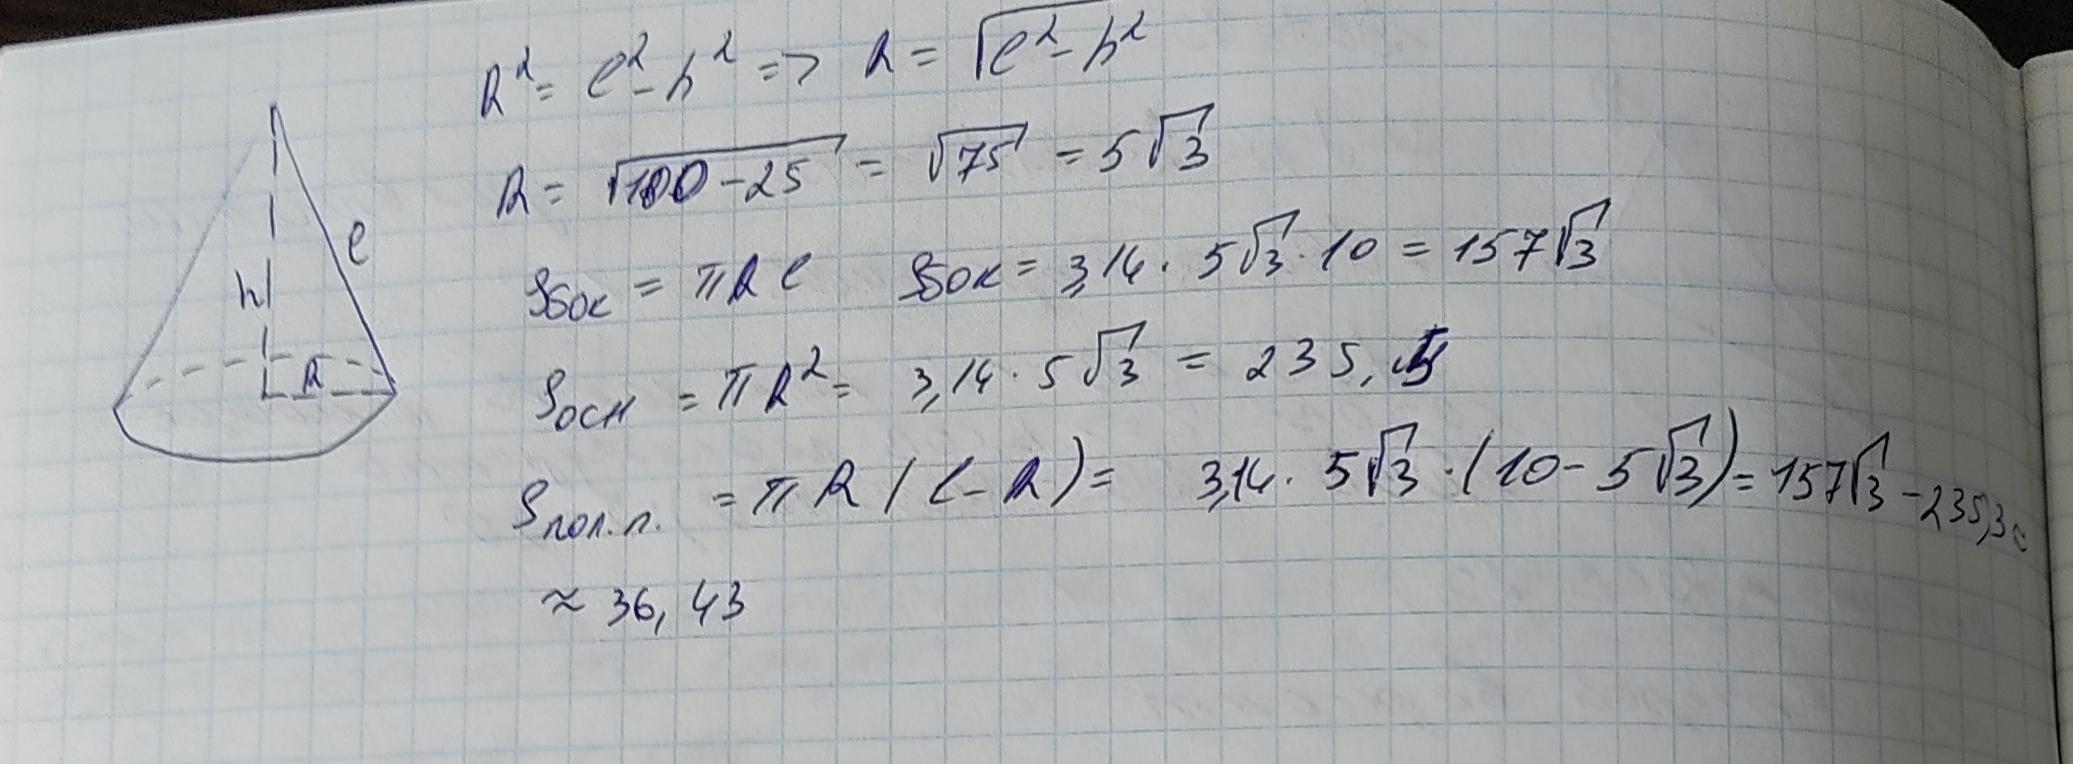 R² = l² - h² => R = √(l² - h²)
R = √(100 - 25) = √75 = 5√3
Sбок = πRl Sбок = 3,14 · 5√3 · 10 = 157√3
Sосн = πR² = 3,14 · 5√3 = 235,5
Sпол.п. = πR(l - R) = 3,14 · 5√3 · (10 - 5√3) = 157√3 - 235,3 ≈
≈ 36,43
l
h
R